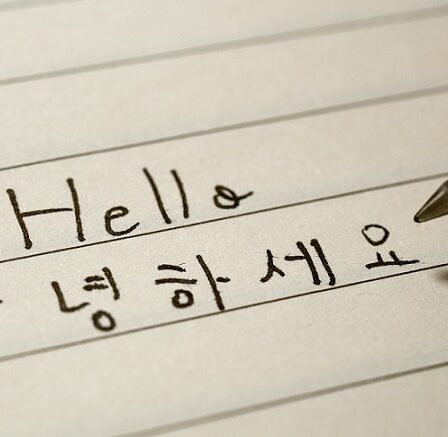 Hello
녕하세요